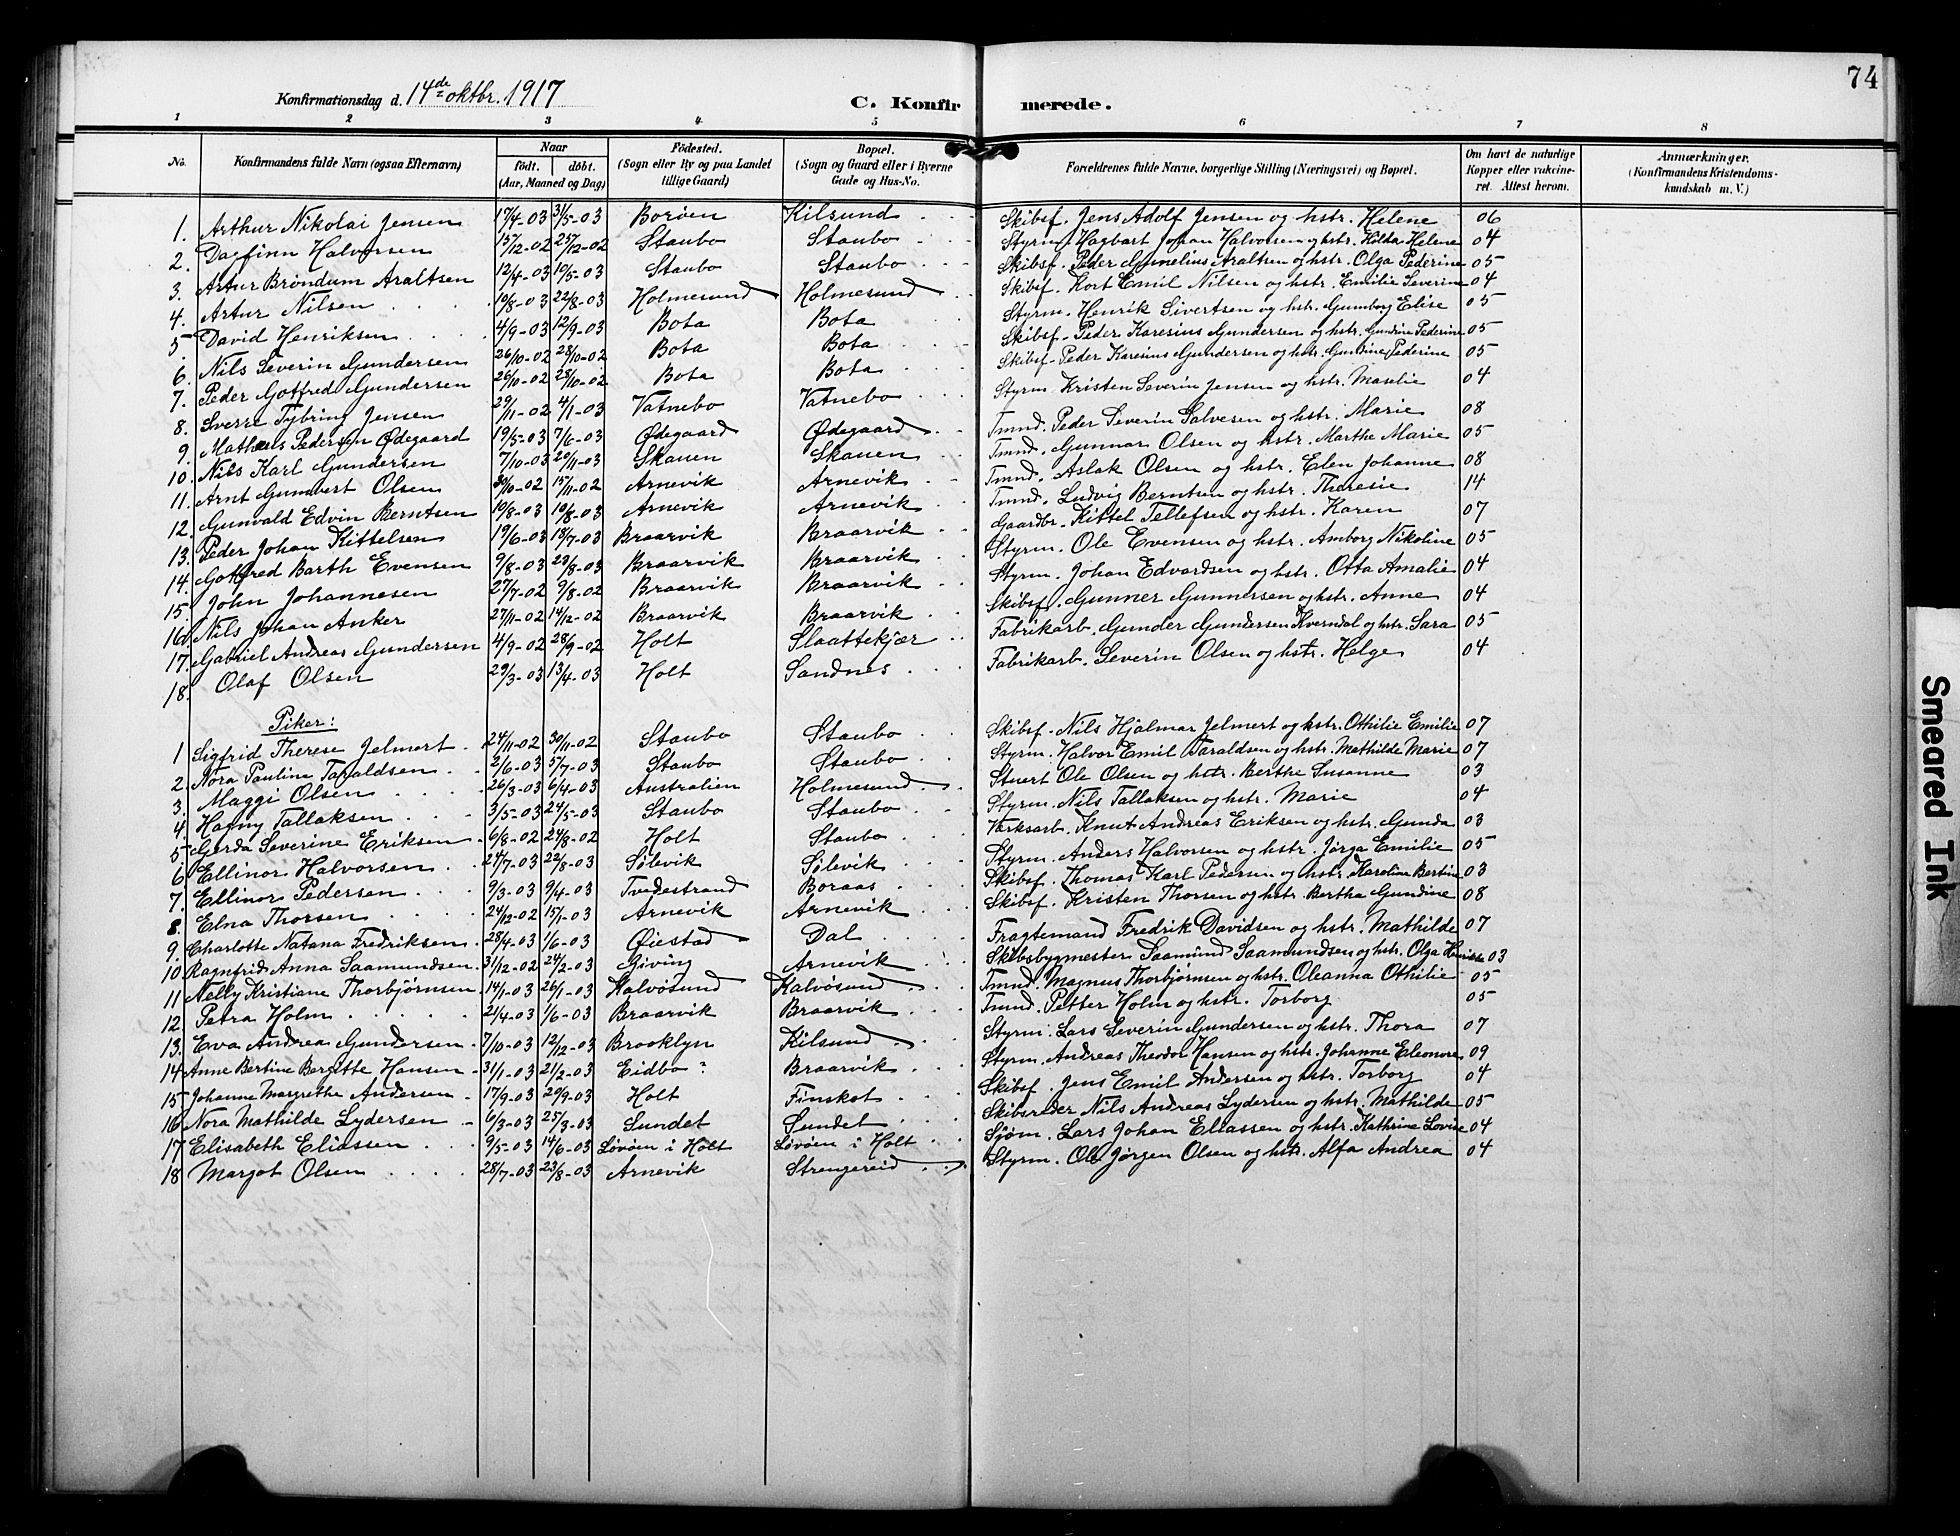 74
Konfirmationsdag d. 14de oktbr. 1917
C. Konfirmerede.
1 2 3 4 5 6 7 8
No. Konfirmandens fulde Navn (ogsaa Efternavn) Naar födt. döbt. (Aar, Maaned og Dag) Födested. (Sogn eller By og paa Landet tillige Gaard) Bopæl. (Sogn og Gaard eller i Byerne Gade og Hus-No. Forældrenes fulde Navne, borgerlige Stilling (Næringsvei) og Bopæl. Om havt de naturlige Kopper eller vakcineret. Attest herom. Anmærkninger. (Konfirmandens Kristendomskundskab m. V.)
1. Arthur Nikolai Jensen 17/4-03 3/5-03 Borøen Kilsund Skibsf. Jens Adolf Jensen og hstr. Helene 06
2. Dagfinn Halvorsen 15/12-02 25/12-02 Staubo Staubo Styrm. Hagbart Johan Halvorsen og hstr. Hilda Helene 04
3. Artur Bröndum Araltsen 12/4-03 10/5-03 Staubo Staubo Skibsf. Peder Gunelius Araltsen og hstr. Olga Pederine 05
4. Artur Nilsen 10/8-03 22/8-03 Holmesund Holmesund Skibsf. Kort Emil Nilsen og hstr. Emilie Severine 04
5. David Henriksen 4/9-03 12/9-03 Bota Bota Styrm. Henrik Sivertsen og hstr. Gunborg Elise 05
6. Nils Severin Gundersen 26/10-02 28/10-02 Bota Bota Skibsf. Peder Karesius Gundersen og hstr. Gundine Pederine 05
7. Peder Gotfred Gundersen 26/10-02 28/10-02 Bota Bota Skibsf. Peder Karesius Gundersen og hstr. Gundine Pederine 05
8. Sverre Tybring Jensen 29/11-02 4/1-03 Vatnebo Vatnebo Styrm. Kristen Severin Jensen og hstr. Maselie 04
9. Mathæus Pedersen Ødegaard 19/5-03 7/6-03 Ødegaard Ødegaard Tmnd. Peder Severin Salvesen og hstr. Marie 08
10. Nils Karl Gundersen 7/10-03 20/11-03 Skauen Skauen Tmnd. Gunnar Olsen og hstr. Marthe Marie 05
11. Arnt Gumbert Olsen 30/10-02 15/11-02 Arnevik Arnevik Tmnd. Aslak Olsen og hstr. Elen Johanne 08
12. Gunvald Edvin Berntsen 10/8-03 10/8-03 Arnevik Arnevik Tmnd. Ludvig Berntsen og hstr. Theresie 14
13. Peder Johan Kittelsen 19/6-03 18/7-03 Braarvik Braarvik Gaardbr. Kittel Tellefsen og hstr. Karen 07
14. Gotfred Barth Evensen 9/8-03 23/8-03 Braarvik Braarvik Styrm. Ole Evensen og hstr. Amborg Nikoline 05
15. John Johannesen 27/7-02 9/8-02 Braarvik Braarvik Styrm. Johan Edvardsen og hstr. Otta Amalie 04
16. Nils Johan Anker 27/11-02 14/12-02 Braarvik Braarvik Skibsf. Gunner Gunnersen og hstr. Anne 04
17. Gabriel Andreas Gundersen 4/9-02 28/9-02 Holt Slaattekjær Fabrikarb. Gunder Gundersen Kverndal og hstr. Sara 05
18. Olaf Olsen 29/3-03 13/4-03 Holt Sandnes Fabrikarb. Severin Olsen og hstr. Helge 04
Piker:
1 Sigfrid Therese Jelmert 24/11-02 30/11-02 Staubo Staubo Skibsf. Nils Hjalmar Jelmert og hstr. Othilie Emilie 07
2. Nora Pauline Taraldsen 2/6-03 5/7-03 Staubo Staubo Styrm. Halvor Emil Taraldsen og hstr. Mathilde Marie 07
3. Maggi Olsen 26/3-03 6/4-03 Australien Holmesund Stuert Ole Olsen og hstr. Berthe Susanne 03
4. Hagny Tallaksen 3/5-03 24/5-03 Staubo Staubo Styrm. Nils Tallaksen og hstr. Marie 04
5. Gerda Severine Eriksen 6/8-02 24/8-02 Holt Staubo Værksarb. Knut Andreas Eriksen og hstr. Gunda 03
6. Ellinor Halvorsen 24/7-03 22/8-03 Sølevik Sølevik Styrm. Anders Halvorsen og hstr. Jørga Emilie 05
7. Ellinor Pedersen 9/3-03 9/4-03 Tvedestrand Boraas Skibsf. Thomas Karl Pedersen og hstr. Karoline Bertine 03
8. Elna Thorsen 24/12-02 15/1-03 Arnevik Arnevik Skibsf. Kristen Thorsen og hstr. Bertha Gundine 08
9. Charlotte Natana Fredriksen 28/4-03 1/6-03 Øiestad Dal Fragtemand Fredrik Davidsen og hstr. Mathilde 07
10 Ragnfrid Anna Saamundsen 31/12-02 24/2-03 Giving Arnevik Skibsbygmester Saamund Saamundsen og hstr. Olga 03
11 Nelly Kristiane Thorbjørnsen 14/1-03 26/1-03 Kalvøsund Kalvøsund Tmnd. Magnus Thorbjørnsen og hstr. Oleanna Othilie 05
12. Petra Holm 21/4-03 1/6-03 Braarvik Braarvik Tmnd. Petter Holm og hstr. Torborg 05
13. Eva Andrea Gundersen 7/10-03 12/12-03 Brooklyn Kilsund Styrm. Lars Severin Gundersen og hstr. Thora 07
14 Anne Bertine Bergitte Hansen 31/1-03 21/2-03 Eidbo Braarvik Styrm. Andreas Theodor Hansen og hstr. Johanne Eleonore 09
15 Johanne Margrethe Andersen 17/9-03 29/9-03 Holt Finskot Skibsf. Jens Emil Andersen og hstr. Torborg 04
16 Nora Mathilde Lydersen 6/3-03 25/3-03 Sundet Sundet Skibsreder Nils Andreas Lydersen og hstr. Mathilde 05
17 Elisabeth Eliassen 9/5-03 14/6-03 Løvøen i Holt Løvøen i Holt Sjøm. Lars Johan Eliassen og hstr. Kathrine Lovise 04
18 Margot Olsen 28/7-03 23/8-03 Arnevik Strengereid Styrm. Ole Jørgen Olsen og hstr. Alfa Andrea 04
Smeared Ink